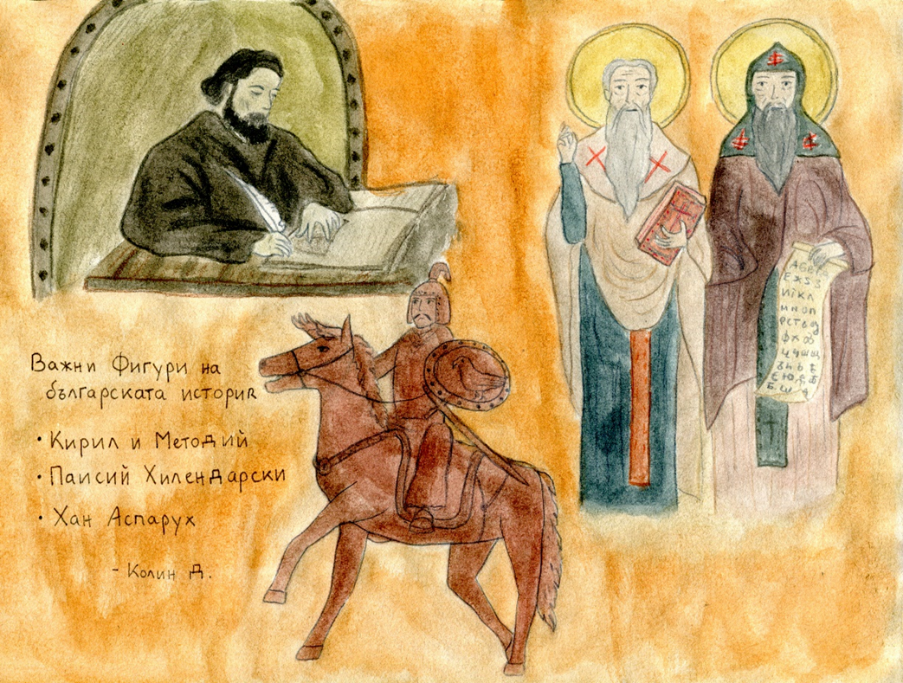 Важни Фигури на
българската история
• Кирил и Методий
• Паисий Хилендарски
• Хан Аспарух
- Колин Д.